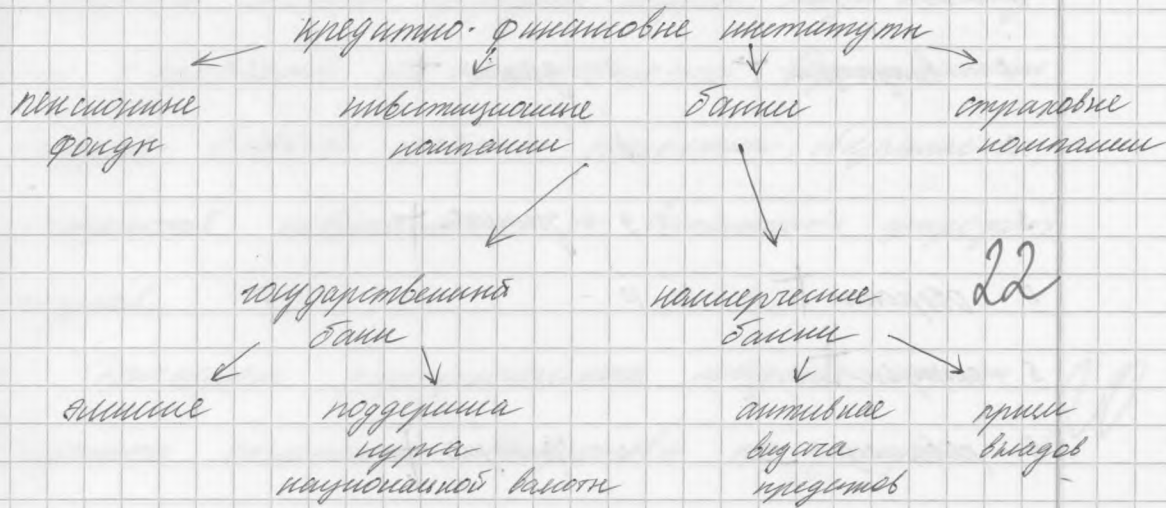 кредитно-финансовые институты
пенсионные фонды
инвестиционные компании
банки
страховые компании
государственный банк
коммерческие банки
22
эмиссия
поддержка курса национальной валюты
активная выдача кредитов
прием вкладов